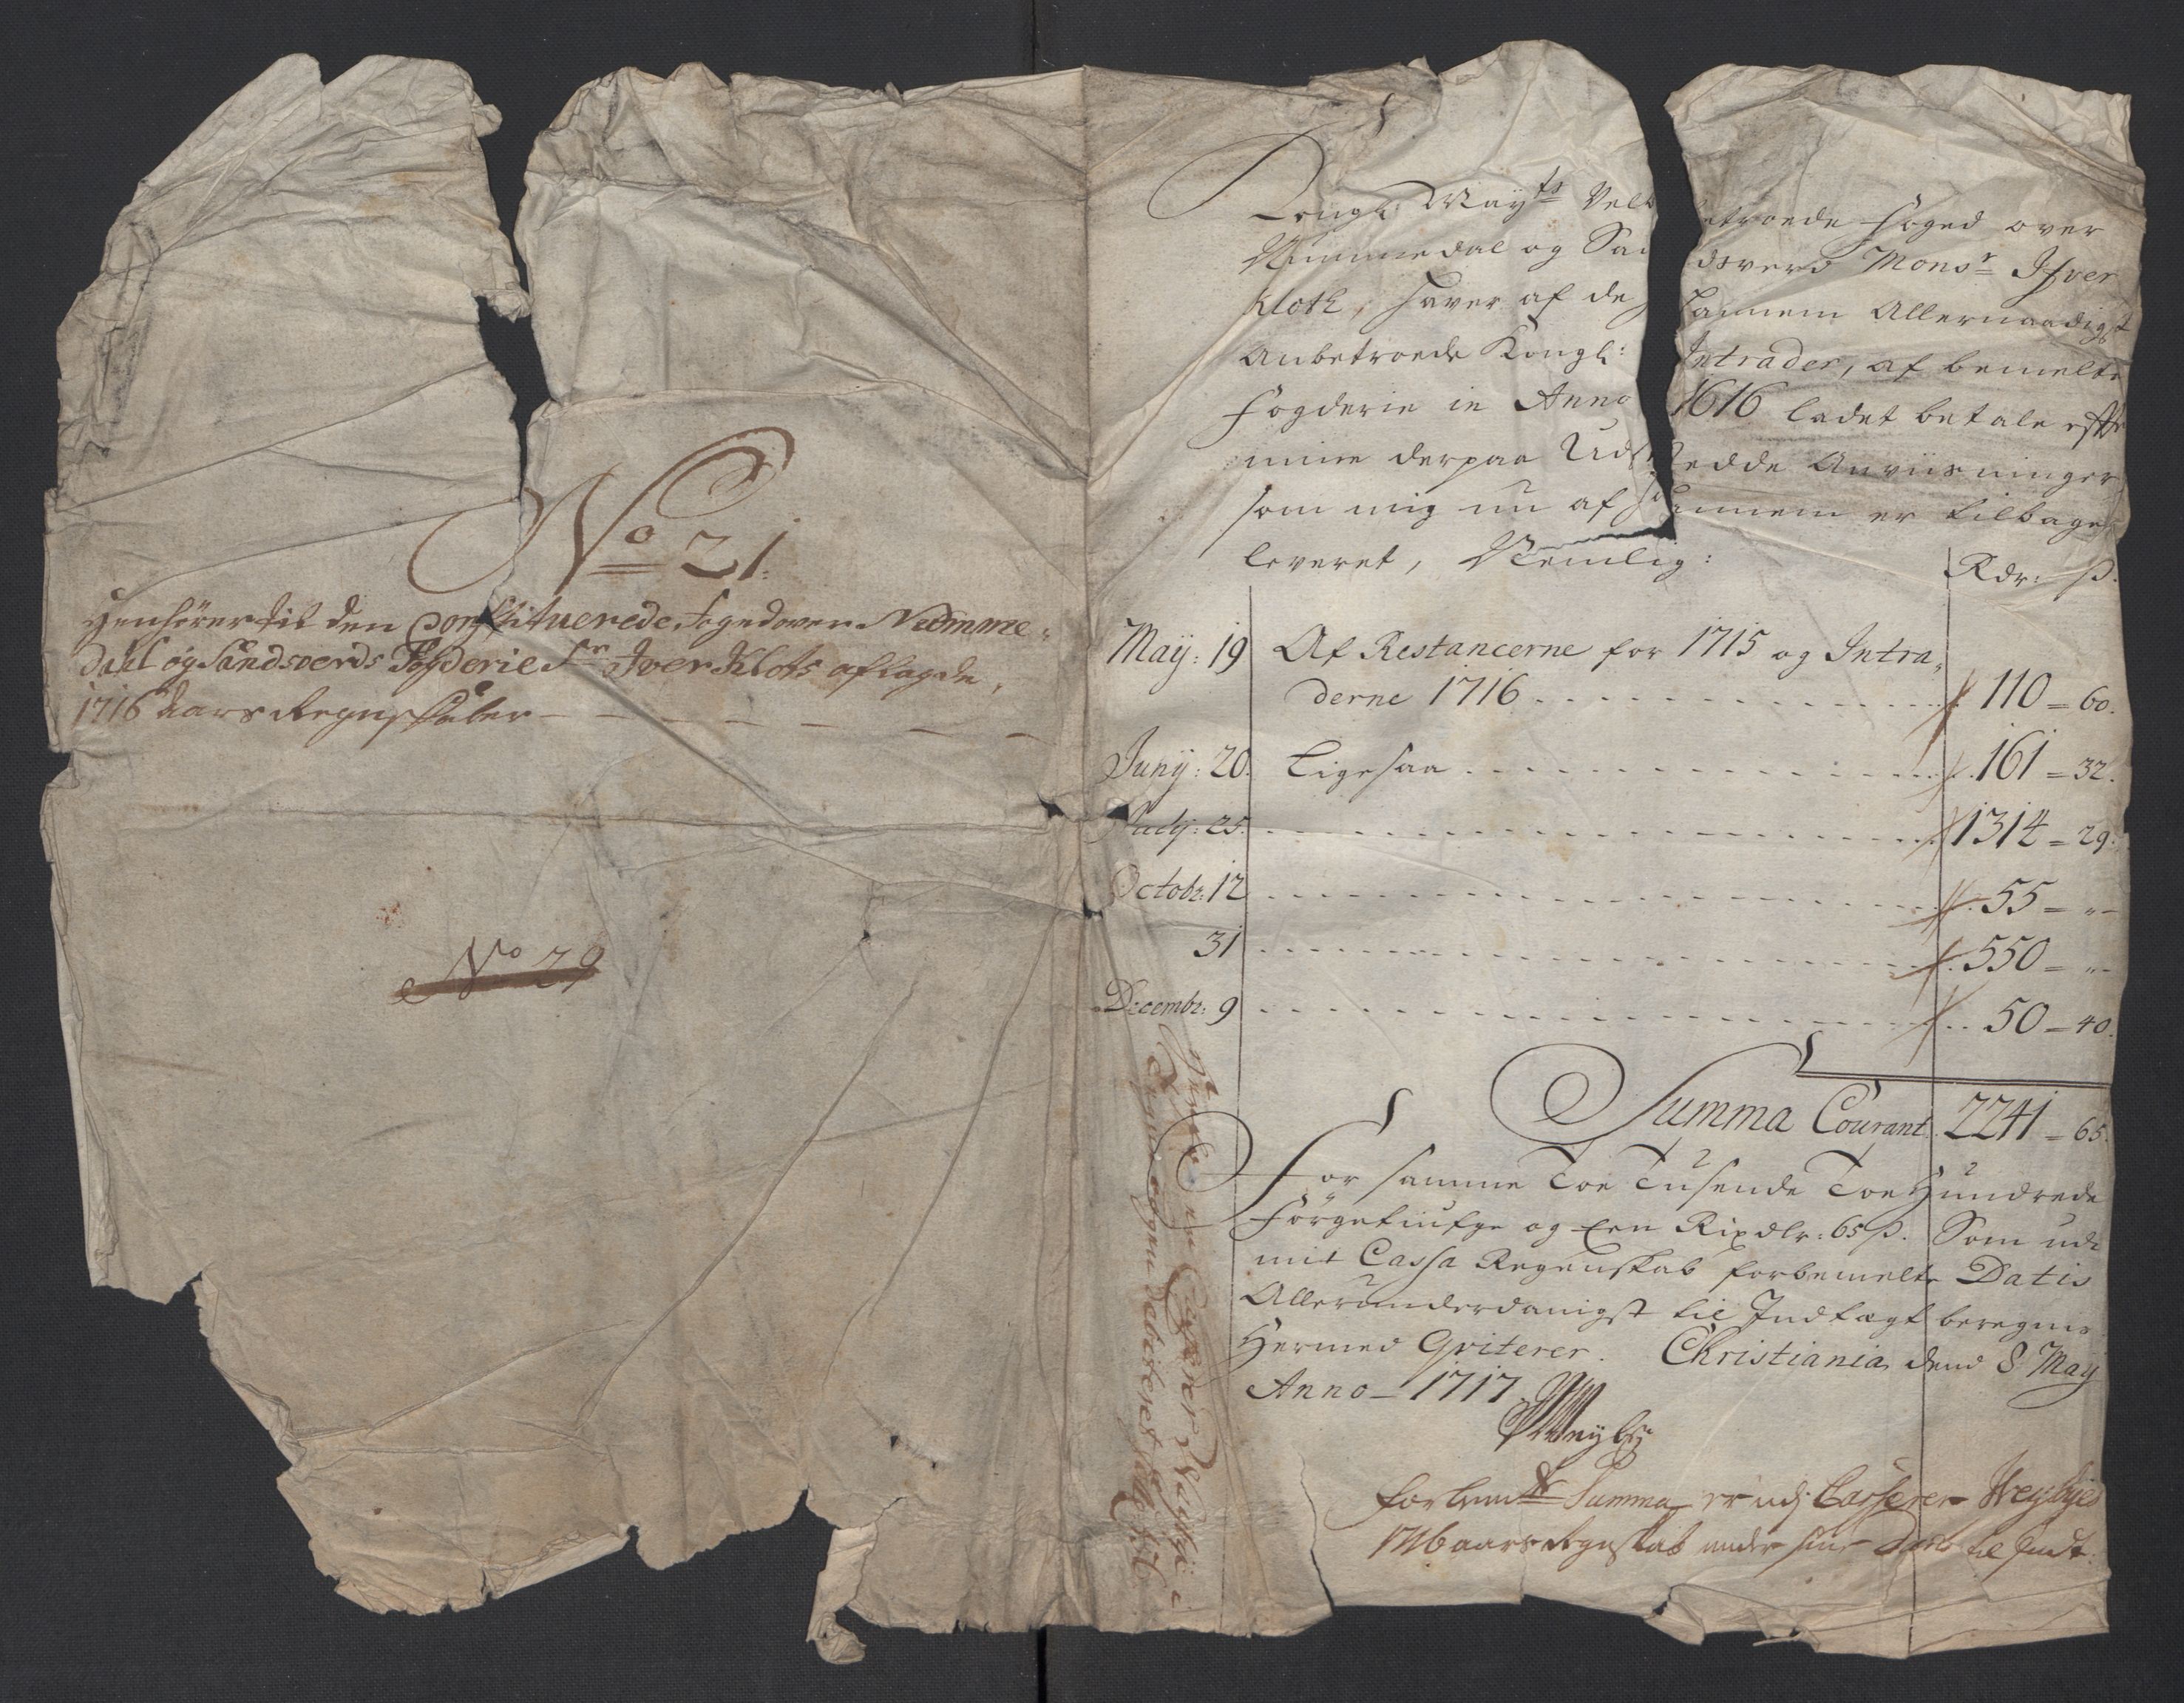 No 21.
Henhörer til den Constituerede Foged over Numme-
dahl og Sandsverds Fogderie Sr Iver Klots aflagde
1716 Aars Regnskaber
No 29
Kongl: Mayts Velbetroede Foged over
Nummedal og Sandsverd Monsr Ifver
Kloth, haver af de hannem Allernaadigst
Anbetroede Kongl: Intrader, af bemelte
Fogderie in Anno 1616 ladet betale effter
mine derpaa Udstedde Anviisninger
som mig nu af hannem er tilbage
leveret, Nemlig:
Rdr: ß.
Maÿ: 19 Af Restancerne for 1715 og Intra-
derne 1716 110 = 60.
Junÿ: 20. Ligesaa 161 = 32.
Julÿ: 25. 1314 = 29.
Octobr: 12 55 = "
31 550 = "
Decembr: 9 50 = 40.
Summa Courant 2241 = 65.
For samme Toe Tusende Toe Hundrede
Förgetiufge og Een Rixdlr: 65 ß. Som udi
mit Cassa Regenskab forbemelte Datis
Allerunderdanigst til Indtægt beregnis
Hermed Qviterer. Christiania dend 8 Maÿ
Anno 1717
Weÿbÿe
Forbemte Summa er udi Casserer Weÿbÿes
1716 aars Regnskab under sine Dato til Indt: